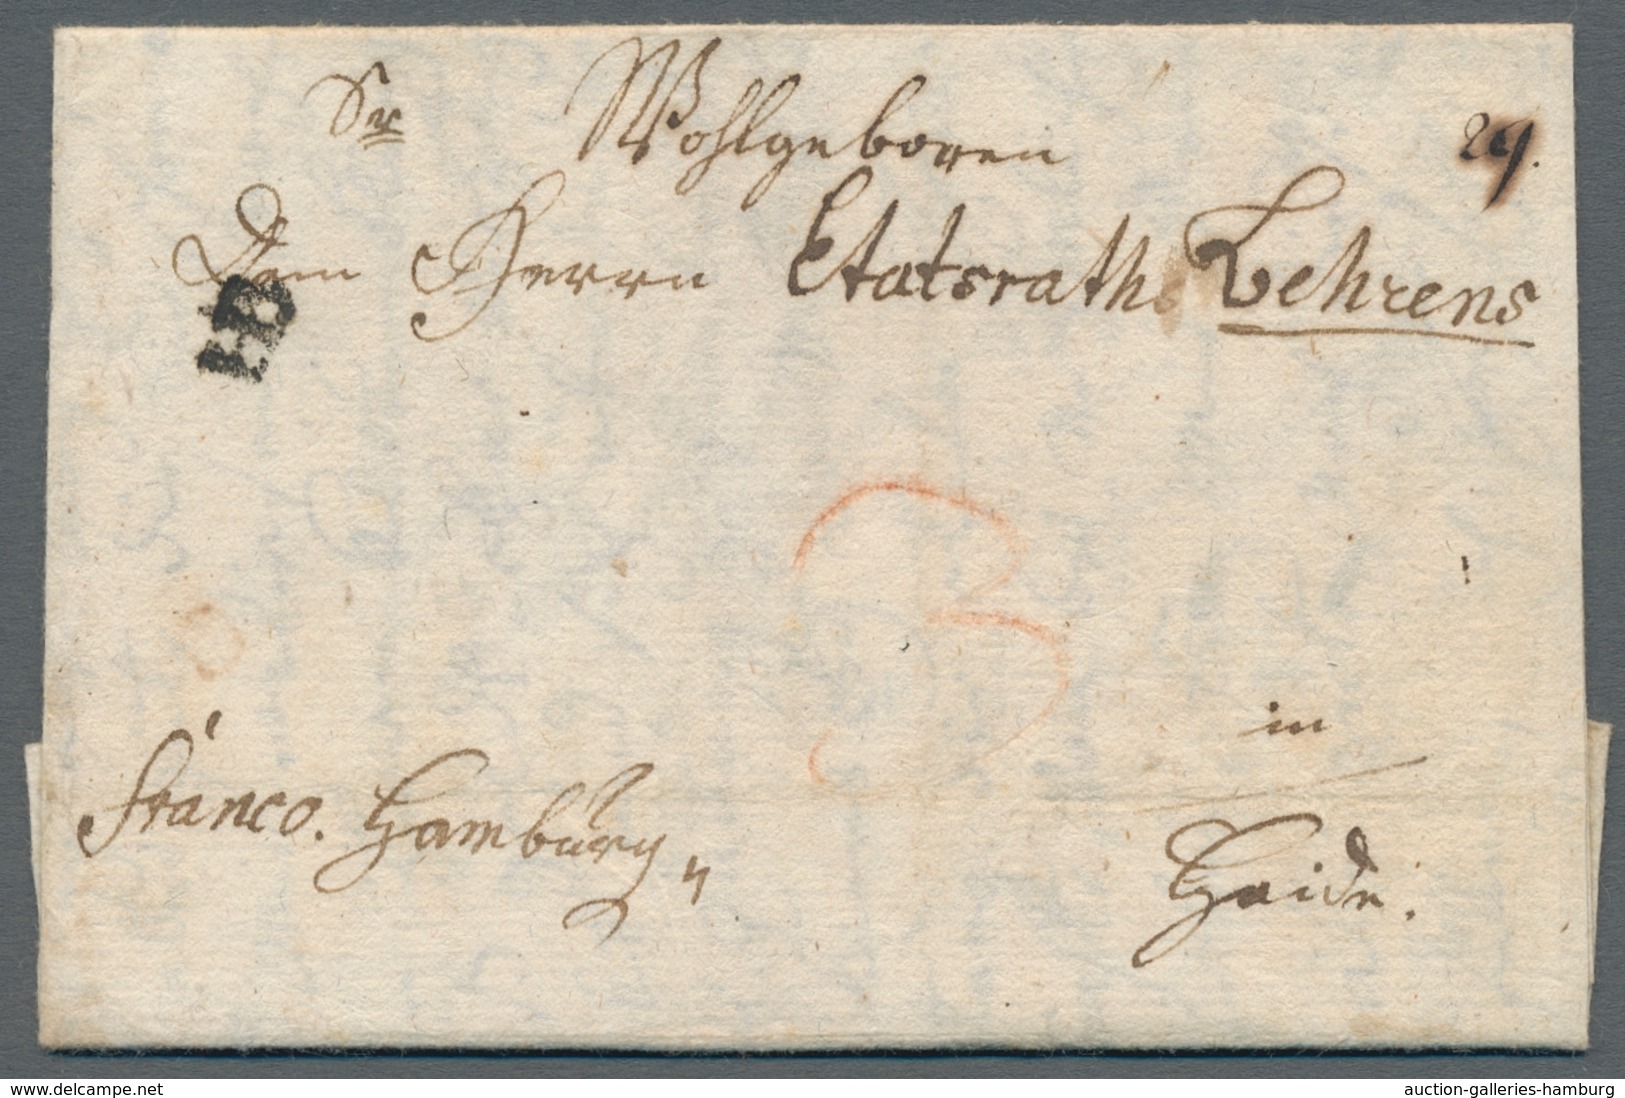 Sr Wohlgeboren
29.
Dem Herrn Etatsrath Behrens
HD
3
in
franco. Hamburg
Haide.
www.delcampe.net
auction-galleries-hamburg